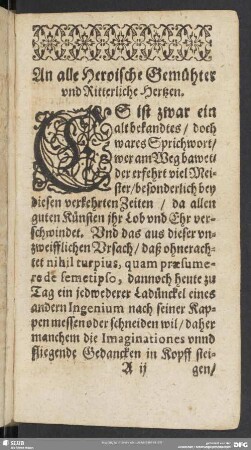 An alle Heroische Gemühter
vnd Ritterliche Hertzen.
ES ist zwar ein
alt bekandtes / doch
wares Sprichwort /
wer am Weg bawet /
der erfehrt viel Mei-
ster / besonderlich bey
diesen verkehrten Zeiten / da allen
guten Künsten jhr Lob vnd Ehr ver-
schwindet. Vnd das aus dieser vn-
zweifflichen Vrsach / daß ohnerach-
tet nihil turpius, quam præsume-
re de semetipso, dannoch heute zu
Tag ein jedwederer Ladünckel eines
andern Ingenium nach seiner Kap-
pen messen oder schneiden wil / daher
manchem die Imaginationes vnnd
fliegende Gedancken in Kopff stei-
A ij gen /
SLUB
DFG